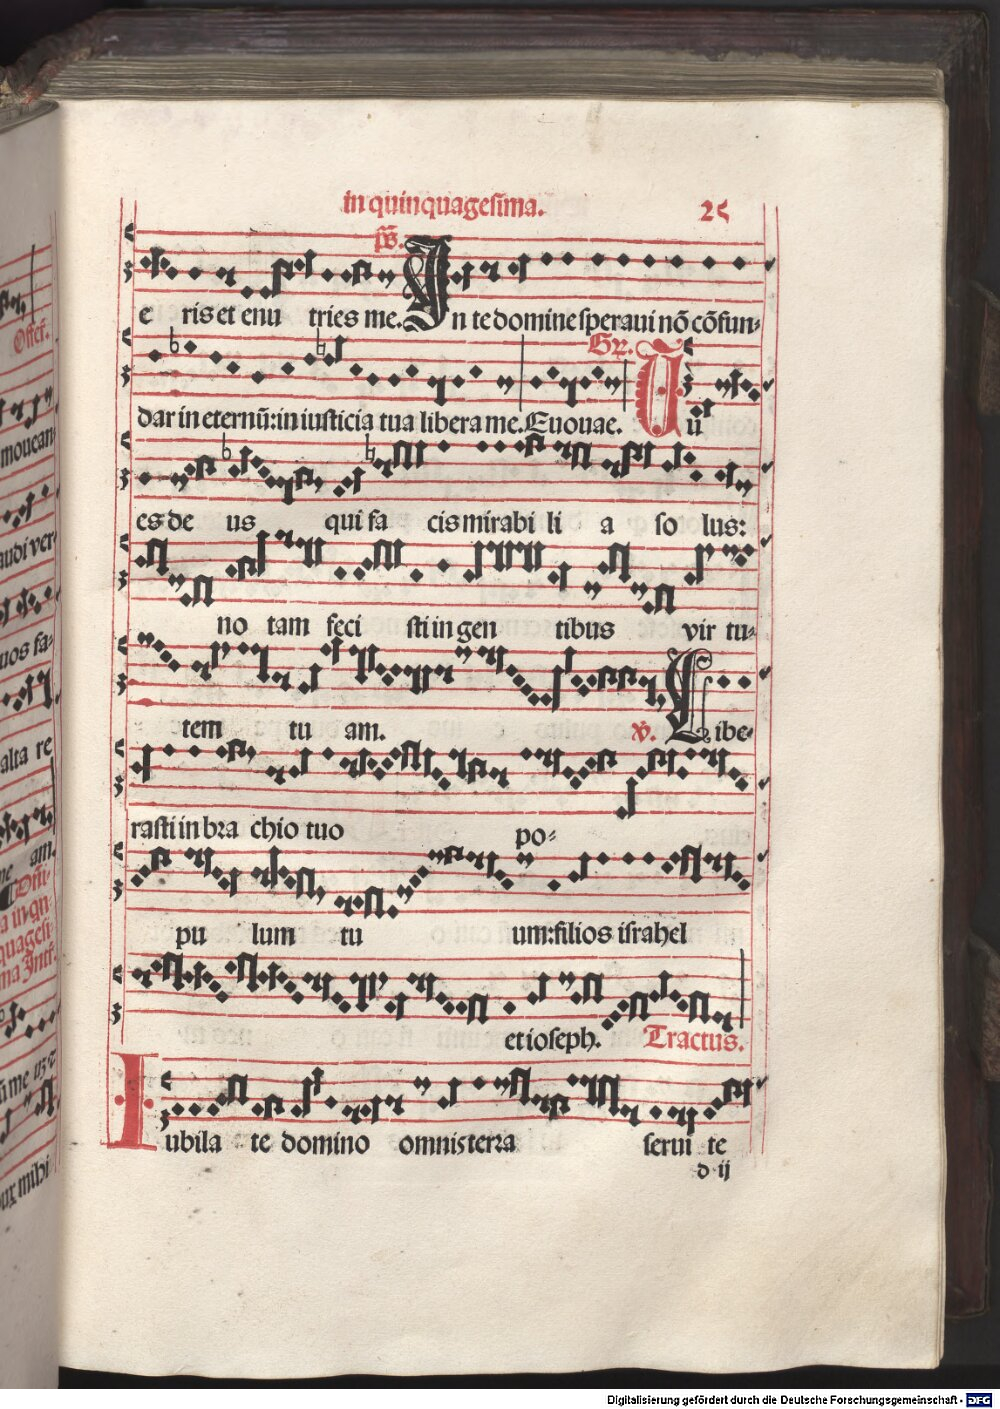 in quinquagesima.
25
ps.
e ris et enu tries me. In te domine speraui nō cōfun-
Gr.
dar in eternū: in iusticia tua libera me. Euouae. Tu
es de us qui fa cis mirabi li a so lus:
no tam feci sti in gen tibus vir tu-
tem tu am. v. Libe-
rasti in bra chio tuo po-
pu lum tu um: filios israhel
et ioseph. Tractus.
Iubila te domino omnis terra serui te
d ij
Offer.
mouean
audi ver
uos fa-
alta re
me am.
quagesi
ux mihi
Digitalisierung gefördert durch die Deutsche Forschungsgemeinschaft - DFG